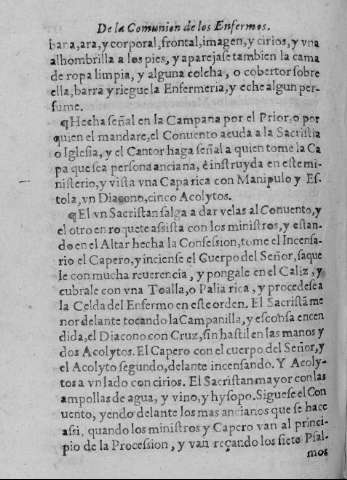 De la Comunion de los Enfermos.
bara, ara, y corporal, frontal, imagen, y cirios, y vna
alhombrilla a los pies, y aparejase tambien la cama
de ropa limpia, y alguna colcha, o cobertor sobre
ella, barra y riegue la Enfermeria, y eche algun per-
fume.
¶Hecha señal en la Campana por el Prior, o por
quien el mandare, el Conuento acuda a la Sacristia
o Iglesia, y el Cantor haga señal a quien tome la Ca
pa que sea persona anciana, è instruyda en este mi-
nisterio, y vista vna Capa rica con Manipulo y Es-
tola, vn Diacono, cinco Acolytos.
¶El vn Sacristan salga a dar velas al Conuento, y
el otro en roquete assista con los ministros, y estan-
do en el Altar hecha la Confession, tome el Incensa-
rio el Capero, y inciense el Cuerpo del Señor, saque
le con mucha reuerencia, y pongale en el Caliz, y
cubrale con vna Toalla, o Palia rica, y procedese a
la Celda del Enfermo en este orden. El Sacristã me
nor delante tocando la Campanilla, y esconsa encen
dida, el Diacono con Cruz, sin hastil en las manos y
dos Acolytos. El Capero con el cuerpo del Señor, y
el Acolyto segundo, delante incensando. Y Acoly-
tos a vn lado con cirios. El Sacristan mayor con las
ampollas de agua, y vino, y hysopo. Siguese el Con
uento, yendo delante los mas ancianos que se hace
assi, quando los ministros y Capero van al princi-
pio de la Procession, y van reçando los siete Psal-
mos